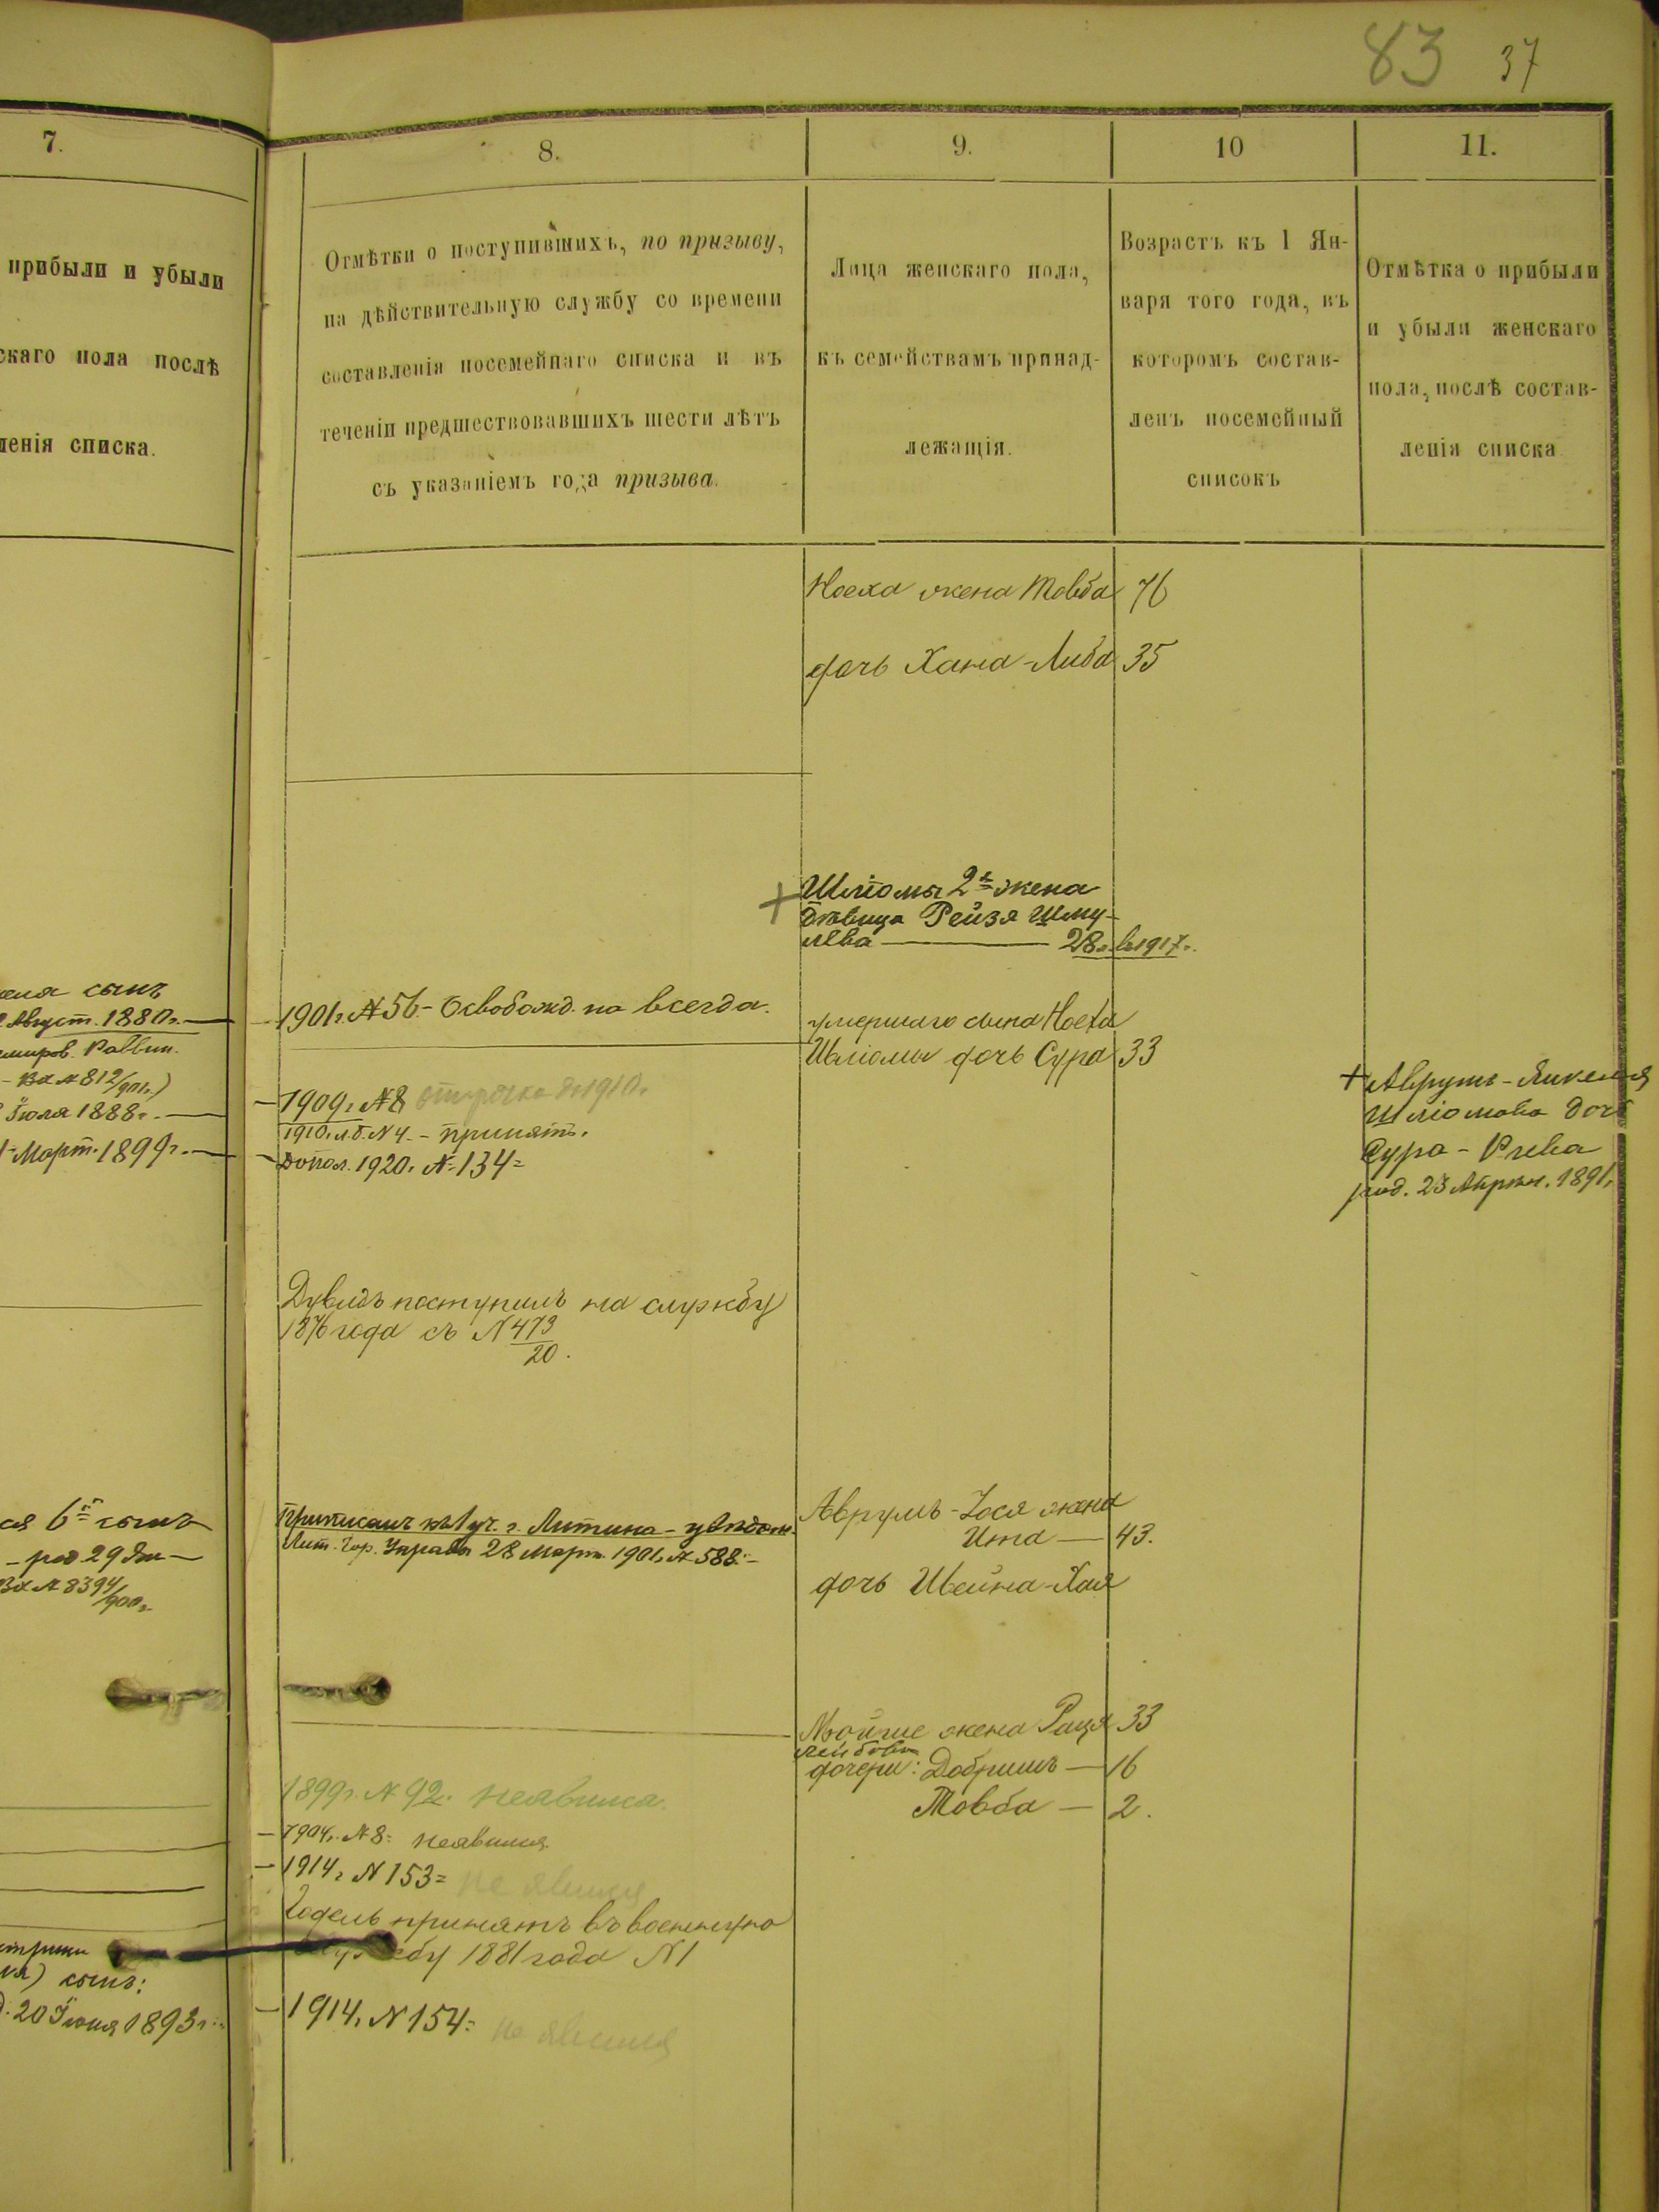 83 37
7.
прибыли и убыли
скаго пола послѣ
ленія списка.
сынъ
Август. 1880г.
Раввин.
Вх № 812/901г.)
Іюля 1888г.
Март. 1899г.
6й сынъ
род 29
Вх № 8394/900г.
сынъ:
20 Іюня 1893г.
8.
Отмѣтки о поступившихъ, по призыву,
на дѣйствительную службу со времени
составленія посемейнаго списка и въ
теченіи предшествовавшихъ шести лѣтъ
съ указаніемъ года призыва.
1901г. № 56 - Освобожд. на всегда.
1909г. № 8 отсрочка до 1910г.
1910г. л.б. № 4. - принятъ.
Допол. 1920г. № 134=
Дувидъ поступилъ на службу
1876 года съ № 473
20.
Приписанъ къ 1 уч. г. Литина - увѣдом.
Лит. Гор. Управы 28 Март. 1901г. № 588.-
1899г. № 92. неявился.
1904г. № 8= неявился.
1914г. № 153= не явился
Годель принятъ въ военную
службу 1881 года № 1
1914г. № 154= не явился
9.
Лица женскаго пола,
къ семействамъ принад-
лежащія.
Ноеха жена Товба
дочь Хана-Либа
+ Шліомы 2я жена
дѣвица Рейзя Шму-
лева — 28 л. въ 1917г.
умершаго сына Ноеха
Шліомы дочь Сура
Аврумъ-Іося жена
Ита —
дочь Шейна-Хая
Мойше жена Рация
Лейбова
дочери: Добришъ —
Товба —
10
Возрастъ къ 1 Ян-
варя того года, въ
которомъ состав-
ленъ посемейный
списокъ
76
35
33
43.
33
16
2.
11.
Отмѣтка о прибыли
и убыли женскаго
пола, послѣ состав-
ленія списка
+ Аврумъ-Янкеля
Шліомова дочь
Сура-Ривка
род. 23 Апрѣл. 1891г.